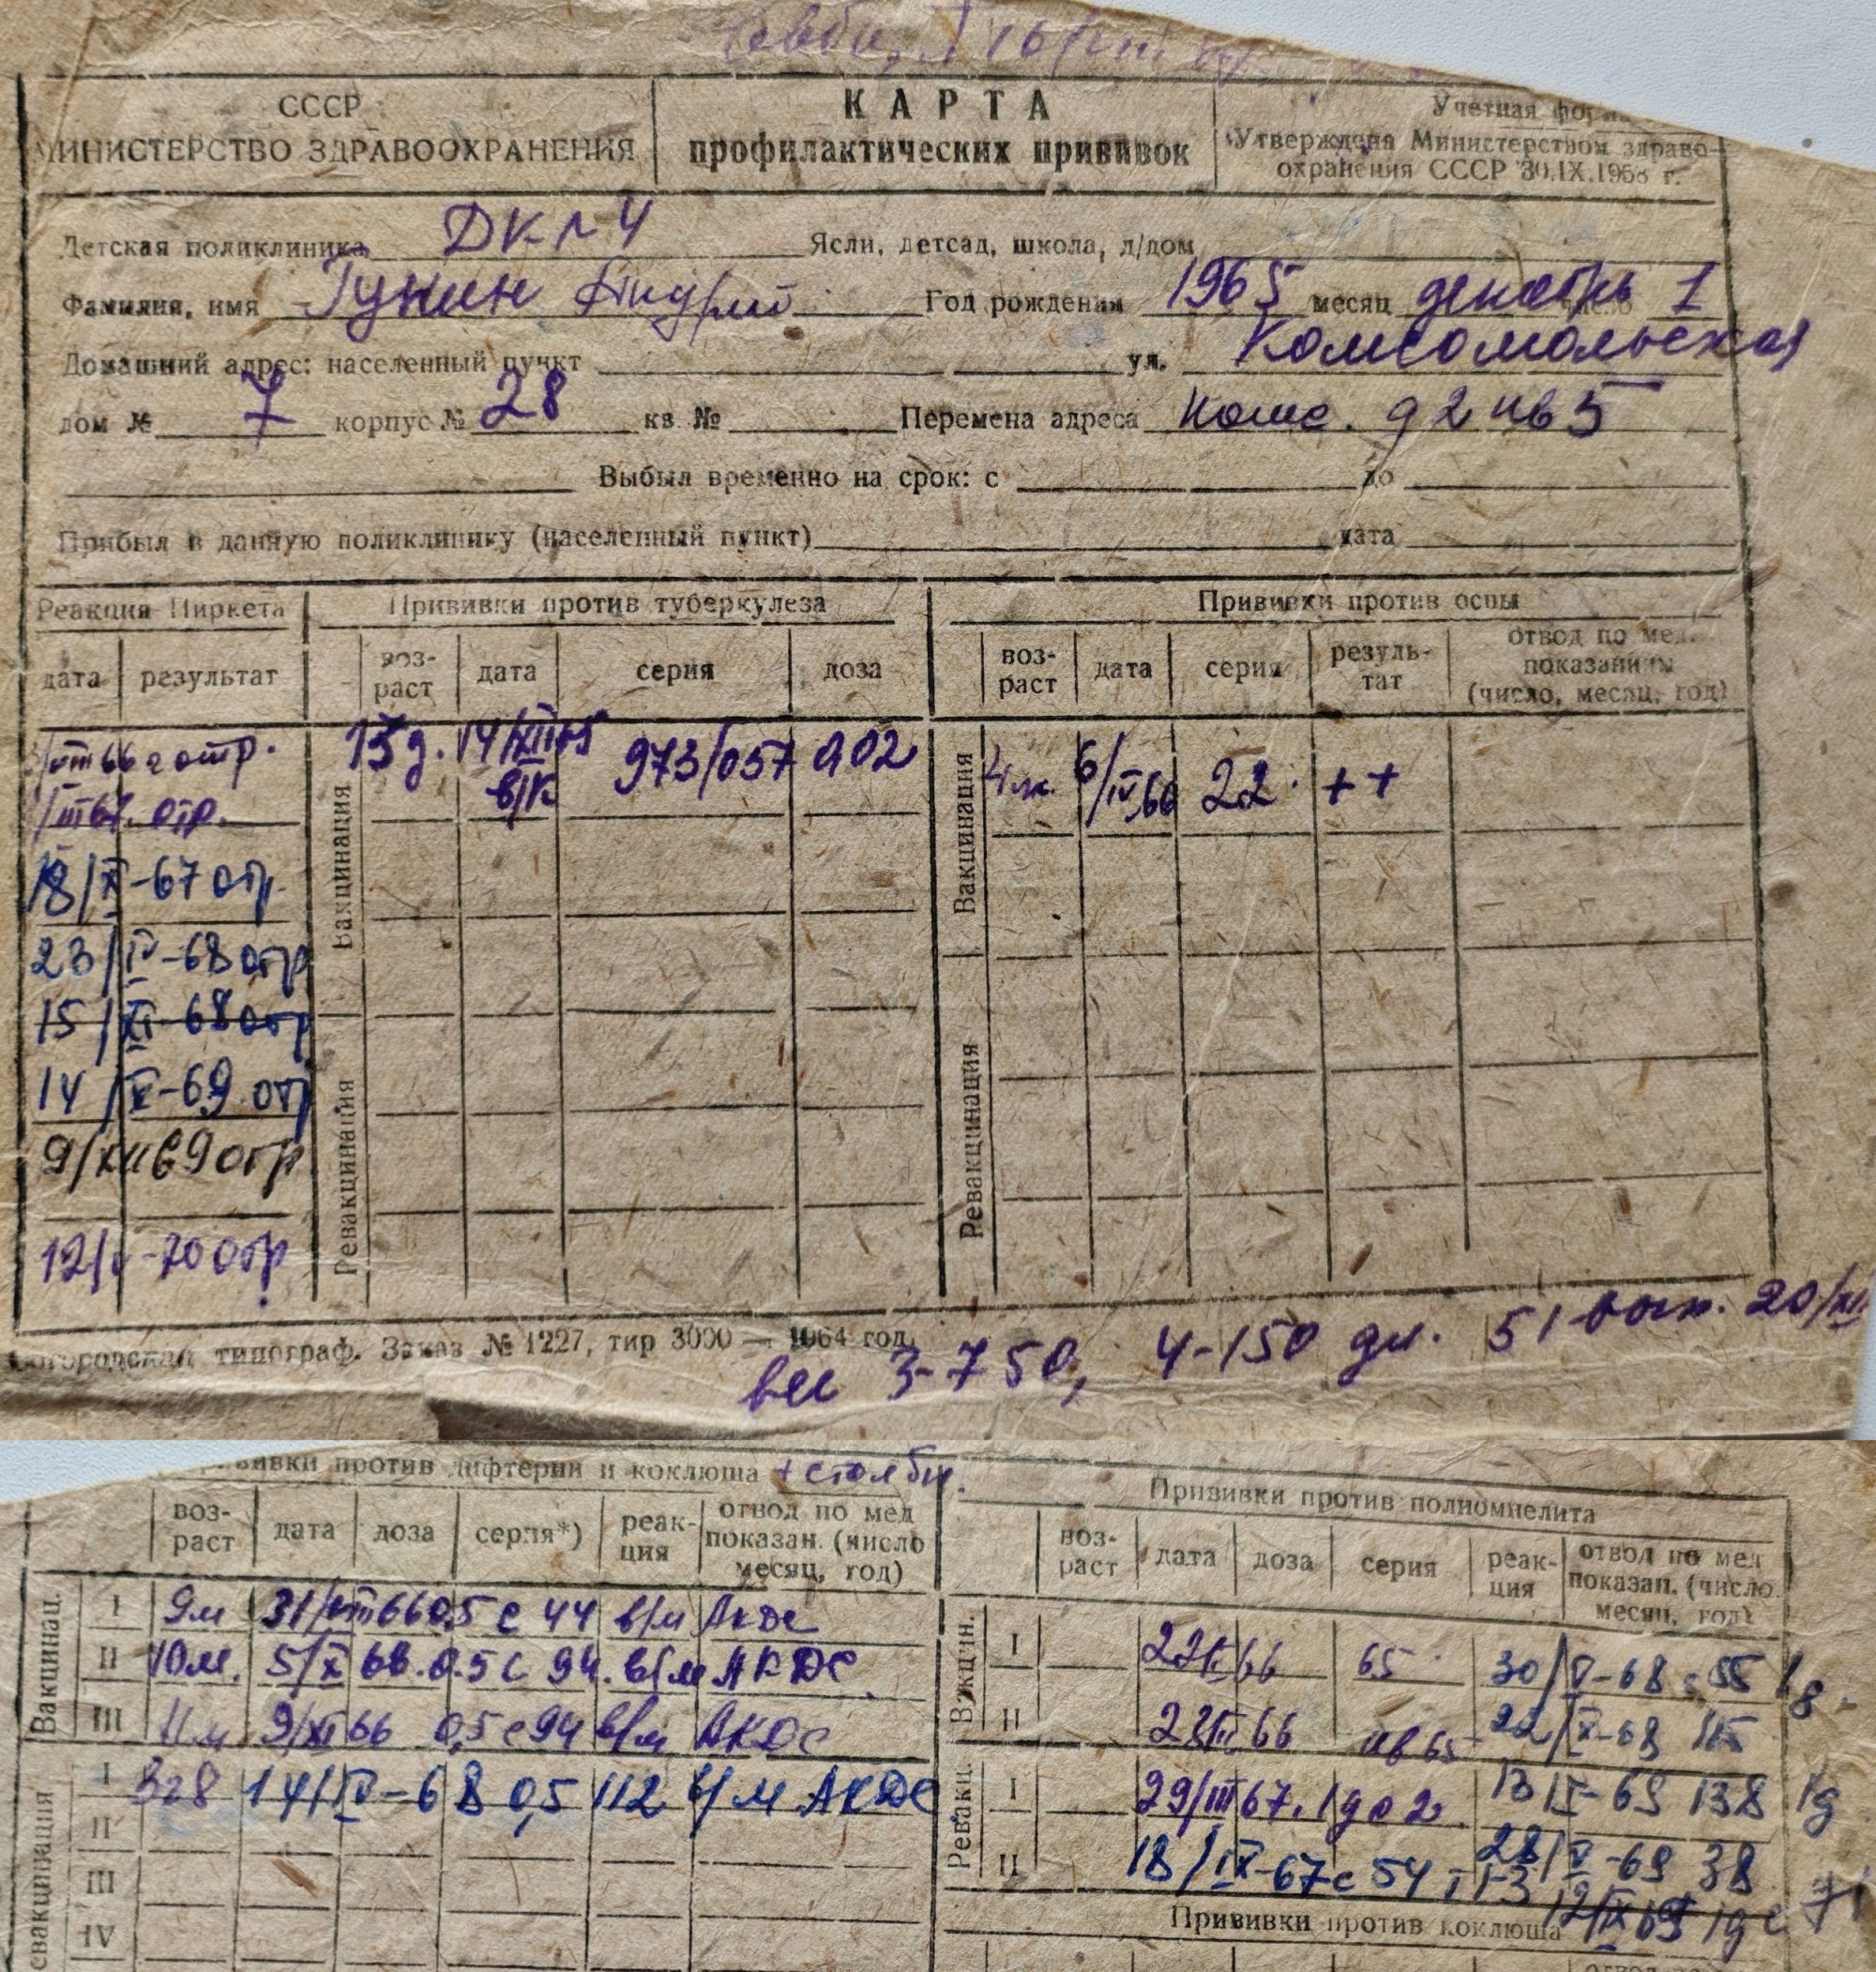 СССР
МИНИСТЕРСТВО ЗДРАВООХРАНЕНИЯ
КАРТА
профилактических прививок
Учетная
Утверждена Министерством здраво-
охранения СССР 30.IX.195 г.
Детская поликлиника ДК №4 Ясли, детсад, школа, д/дом
Фамилия, имя Гунин Андрей Год рождения 1965 месяц декабрь число 1
Домашний адрес: населенный пункт ул. Комсомольская
дом № 7 корпус № 28 кв № Перемена адреса Комс. д 2 кв 5
Выбыл временно на срок: с до
Прибыл в данную поликлинику (населенный пункт) дата
Реакция Пиркета Прививки против туберкулеза Прививки против оспы
дата результат воз-раст дата серия доза воз-раст дата серия резуль-тат отвод по мед. показаниям (число, месяц, год)
Вакцинация
Ревакцинация
Вакцинация
Ревакцинация
/VIII 66 г отр. 13 д. 14/XII 65 в/к 973/057 0,02 4 м. 6/IV 66 22 ++
/III 67. отр.
18/X-67 отр.
23/IV-68 отр
15/XI-68 отр
14/V-69 отр
9/XII 69 отр
12/V-70 отр
типограф. Заказ № 1227, тир 3000 — 1964 год.
вес 3-750, 4-150 дл. 51 вып. 20/XII
прививки против дифтерии и коклюша + столбн.
воз-раст дата доза серия*) реак-ция отвод по мед показан. (число месяц, год)
Вакцинац.
I 9м 31/VIII 66 0,5 с 44 в/м АКДС
II 10м. 5/X 66. 0.5 с 94. в/м АКДС
III 11м 9/XI 66 0,5 с 94 в/м АКДС
Ревакцинация
I 3г8 14/IV-68 0,5 112 в/м АКДС
II
III
IV
Прививки против полиомиелита
воз-раст дата доза серия реак-ция отвод по мед показан. (число месяц, год)
Вакцин.
I 66 65 30/V-68 с 55
II 66 65 22/X-68 115
Ревакц.
I 29/III 67. 1д с 2. 13/ -69 138 1д
II 18/IX-67 с 54 28/V-69 38
Прививки против коклюша